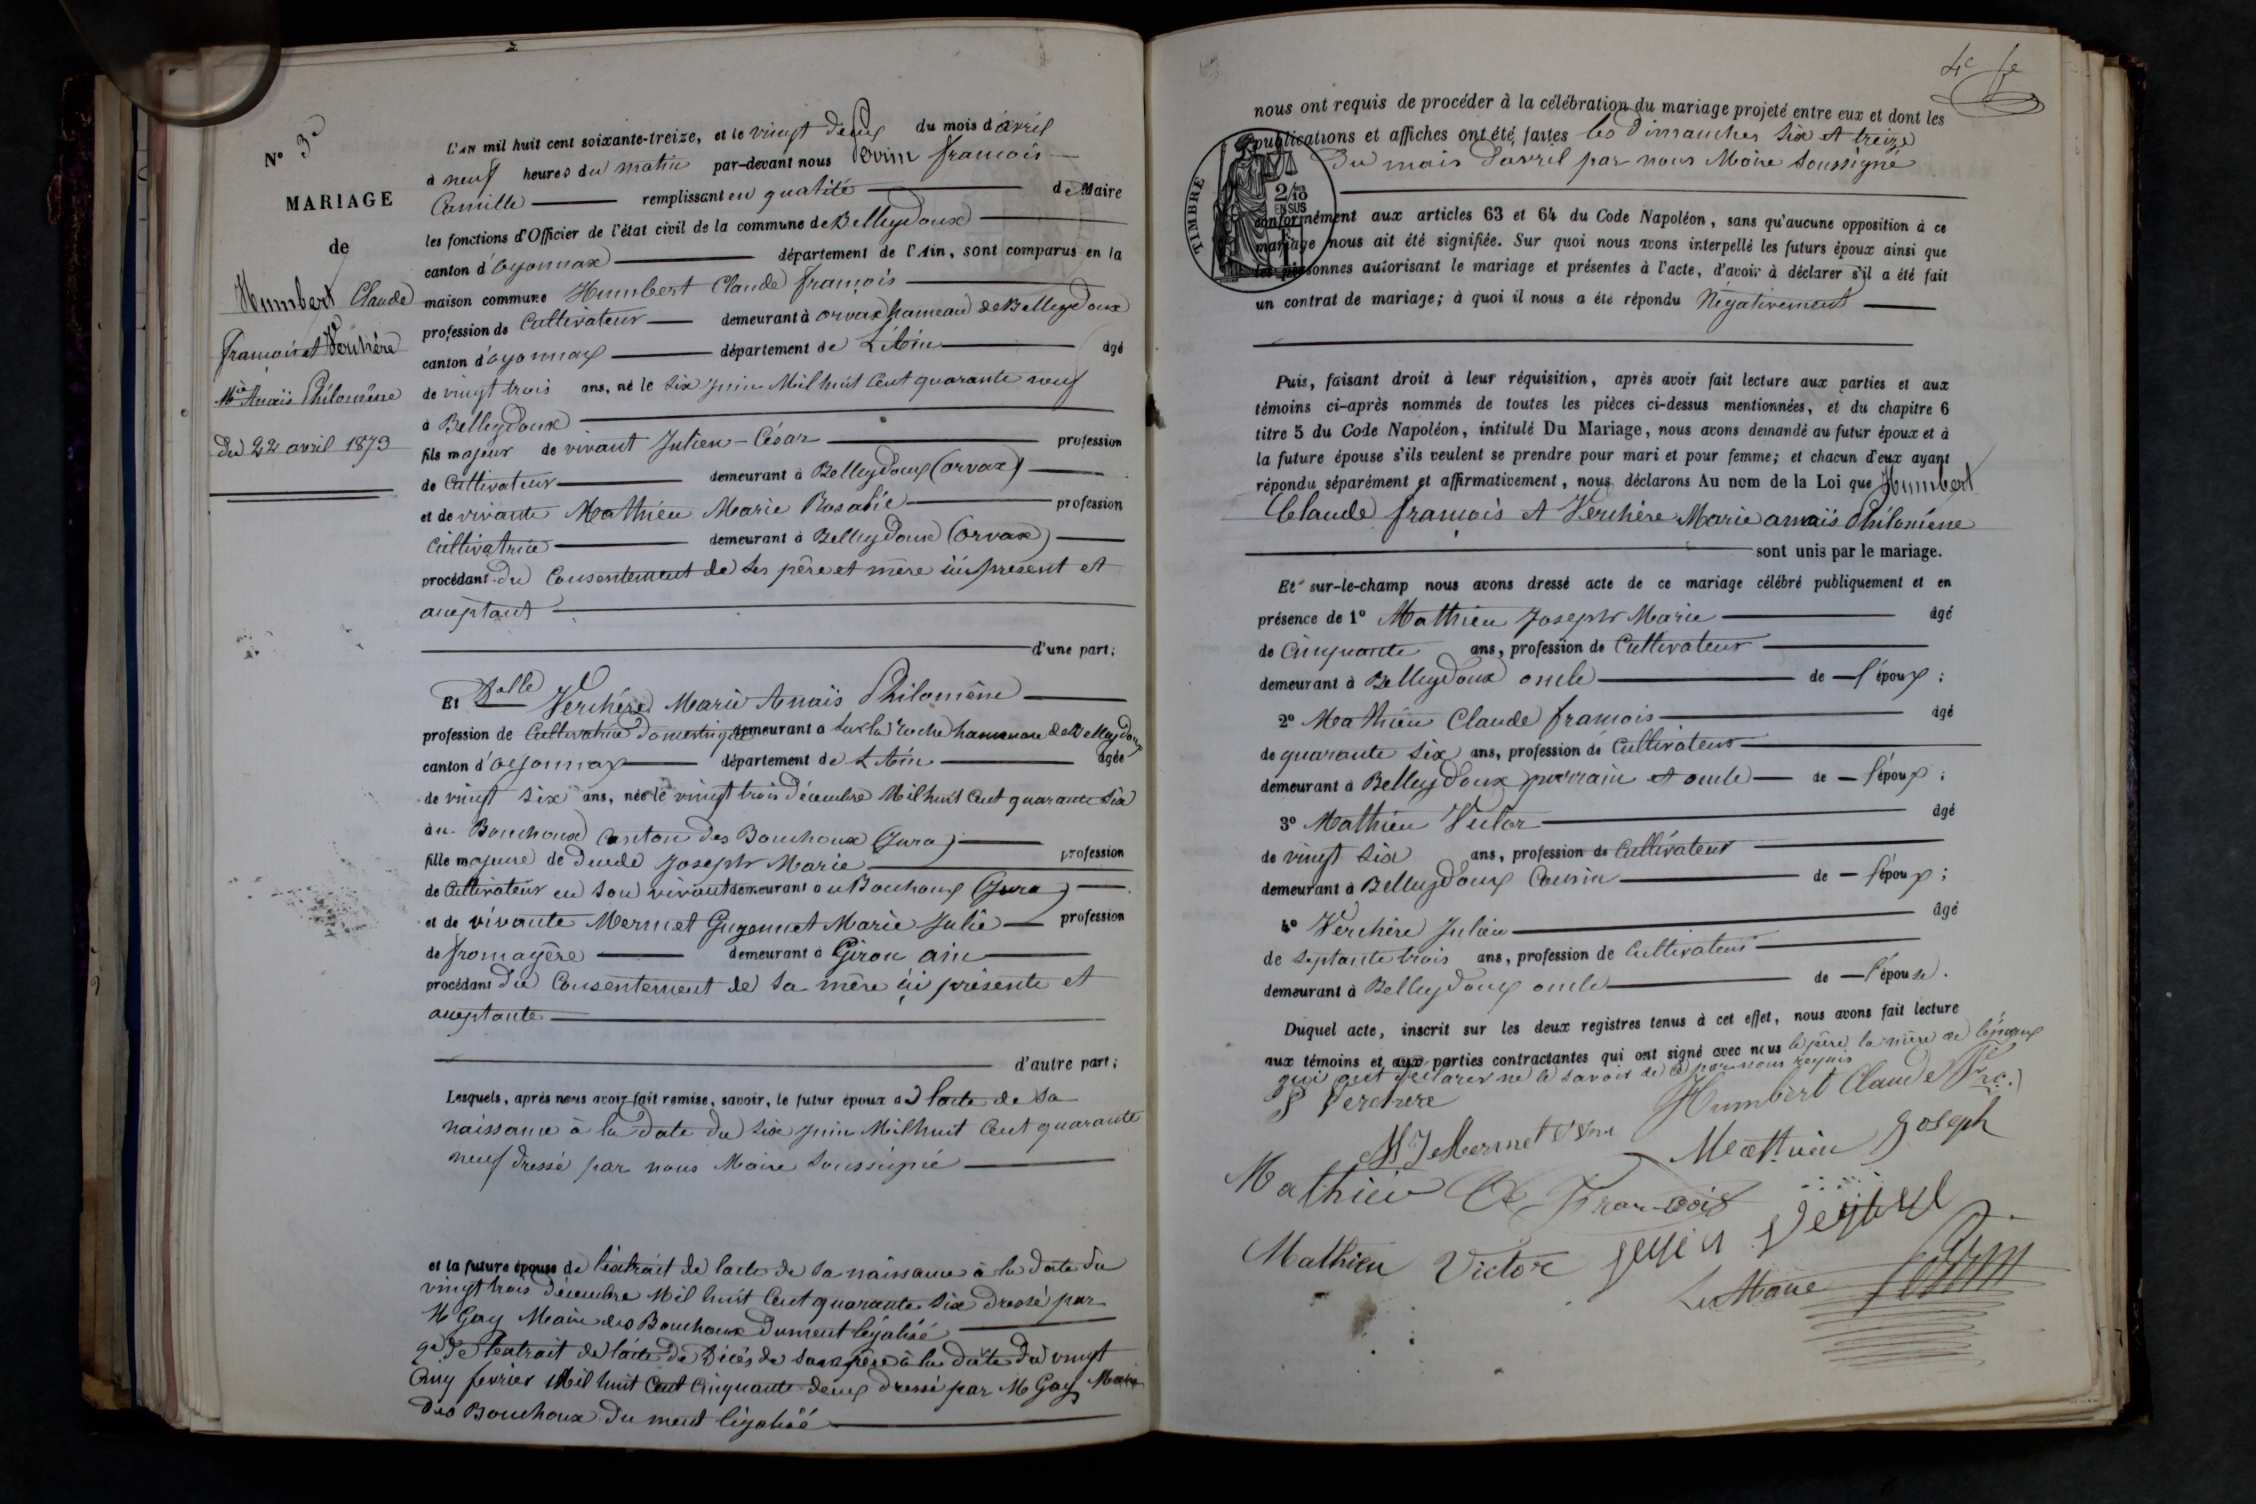 N° 3e
MARIAGE
de
Humbert Claude
françois et Verchère
Mie Anaïs Philomène
du 22 avril 1873
L'AN mil huit cent soixante-treize, et le vingt deux du mois d'avril
à neuf heures du matin par-devant nous Perrin françois
Camille remplissant en qualité de Maire
les fonctions d'Officier de l'état civil de la commune de Belleydoux
canton d'oyonnax département de l'Ain, sont comparus en la
maison commune Humbert Claude françois
profession de Cultivateur demeurant à orvax hameau de Belleydoux
canton d'oyonnax département de L'Ain âgé
de vingt trois ans, né le Six Juin Mil huit Cent quarante neuf
à Belleydoux
fils majeur de vivant Julien-César profession
de Cultivateur demeurant à Belleydoux (orvax)
et de vivante Mathieu Marie Rosalie profession
Cultivatrice demeurant à Belleydoux (orvax)
procédant du Consentement de Ses père et mère ici present et
acceptant
d'une part;
Et Dlle Verchère Marie Anaïs Philomène
profession de Cultivatrice Domestique demeurant à Sur la roche hameau de Belleydoux
canton d'oyonnax département de L'Ain âgée
de vingt six ans, née le vingt trois Décembre Mil huit Cent quarante Six
au Bouchoux Canton des Bouchoux (Jura)
fille majeure de Decédé Joseph Marie profession
de Cultivateur en Son vivant demeurant au Bouchoux (Jura)
et de vivante Mermet Guyennet Marie Julie profession
de fromagère demeurant à Giron ain
procédant du Consentement de Sa mère ici présente et
acceptante
d'autre part;
Lesquels, après nous avoir fait remise, savoir, le futur époux de l'acte de Sa
naissance à la Date du Six Juin Mil huit Cent quarante
neuf dressé par nous Maire Soussigné
et la future épouse de l'extrait de l'acte de Sa naissance à la Date du
vingt trois Décembre Mil huit Cent quarante Six dressé par
M Gay Maire des Bouchoux Dument légalisé
2° De l'extrait de l'acte de Décès de Son père à la Date du vingt
Cinq fevrier Mil huit Cent Cinquante deux dressé par M Gay Maire
des Bouchoux Du ment légalisé
4e fe
nous ont requis de procéder à la célébration du mariage projeté entre eux et dont les
publications et affiches ont été faites les Dimanches Six et treize
Du mois d'avril par nous Maire Soussigné
TIMBRE
2/10
EN SUS
conformément aux articles 63 et 64 du Code Napoléon, sans qu'aucune opposition à ce
mariage nous ait été signifiée. Sur quoi nous avons interpellé les futurs époux ainsi que
les personnes autorisant le mariage et présentes à l'acte, d'avoir à déclarer s'il a été fait
un contrat de mariage; à quoi il nous a été répondu Négativement
Puis, faisant droit à leur réquisition, après avoir fait lecture aux parties et aux
témoins ci-après nommés de toutes les pièces ci-dessus mentionnées, et du chapitre 6
titre 5 du Code Napoléon, intitulé Du Mariage, nous avons demandé au futur époux et à
la future épouse s'ils veulent se prendre pour mari et pour femme; et chacun d'eux ayant
répondu séparément et affirmativement, nous déclarons Au nom de la Loi que Humbert
Claude françois et Verchère Marie anaïs Philomène
sont unis par le mariage.
Et sur-le-champ nous avons dressé acte de ce mariage célébré publiquement et en
présence de 1° Mathieu Joseph Marie âgé
de Cinquante ans, profession de Cultivateur
demeurant à Belleydoux oncle de l'époux;
2° Mathieu Claude françois âgé
de quarante Six ans, profession de Cultivateur
demeurant à Belleydoux parrain et oncle de l'époux;
3° Mathieu Victor âgé
de vingt Six ans, profession de Cultivateur
demeurant à Belleydoux Cousin de l'époux;
4° Verchère Julien âgé
de Septante trois ans, profession de Cultivateur
demeurant à Belleydoux oncle de l'épouse.
Duquel acte, inscrit sur les deux registres tenus à cet effet, nous avons fait lecture
aux témoins et aux parties contractantes qui ont signé avec nous le père la mère de l'époux
qui ont déclarer ne le savoir de ce par nous requis
P Verchère
Humbert Claude Fc
M J Mermet
Matthieu Joseph
Mathieu Cl François
Mathieu Victor
Le Maire Perrin